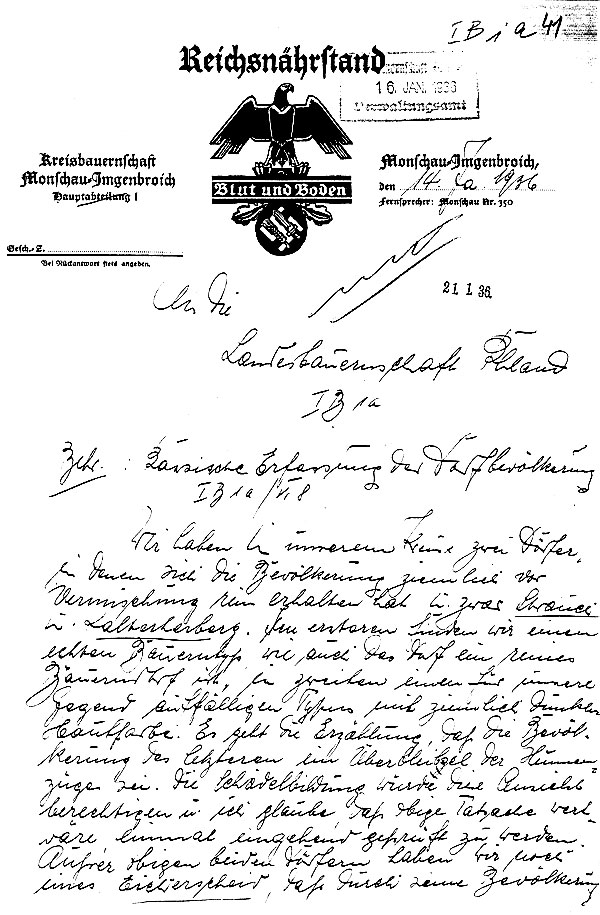 I B 1 a 41
Reichsnährstand
16. JAN. 1936
Verwaltungsamt
Kreisbauernschaft
Monschau-Imgenbroich
Hauptabteilung I
Blut und Boden
Monschau-Imgenbroich,
den 14. Ja 1936
Fernsprecher: Monschau Nr. 350
Gesch.-Z.
Bei Rückantwort stets angeben.
21 1 36.
An die
Landesbauernschaft Rhland
I B 1a
Betr. : Rassische Erfassung der Dorfbevölkerung
I B 1a / VI 8
Wir haben in unserem Kreise zwei Dörfer,
in denen sich die Bevölkerung ziemlich vor
Vermischung rein erhalten hat u. zwar Strauch
u. Kalterherberg. Im ersteren finden wir einen
echten Bauerntyp wie auch das Dorf ein reines
Bauerndorf ist, im zweiten einen für unsere
Gegend auffälligen Typus mit ziemlich dunkler
Hautfarbe. Es geht die Erzählung, daß die Bevöl-
kerung des letzteren ein Überbleibsel der Hunnen-
züge sei. Die Schädelbildung würde diese Ansicht
berechtigen u. ich glaube, daß obige Tatsache wert
wäre einmal eingehend geprüft zu werden.
Außer obigen beiden Dörfern haben wir noch
eines Eicherscheid, daß durch seine Bevölkerung